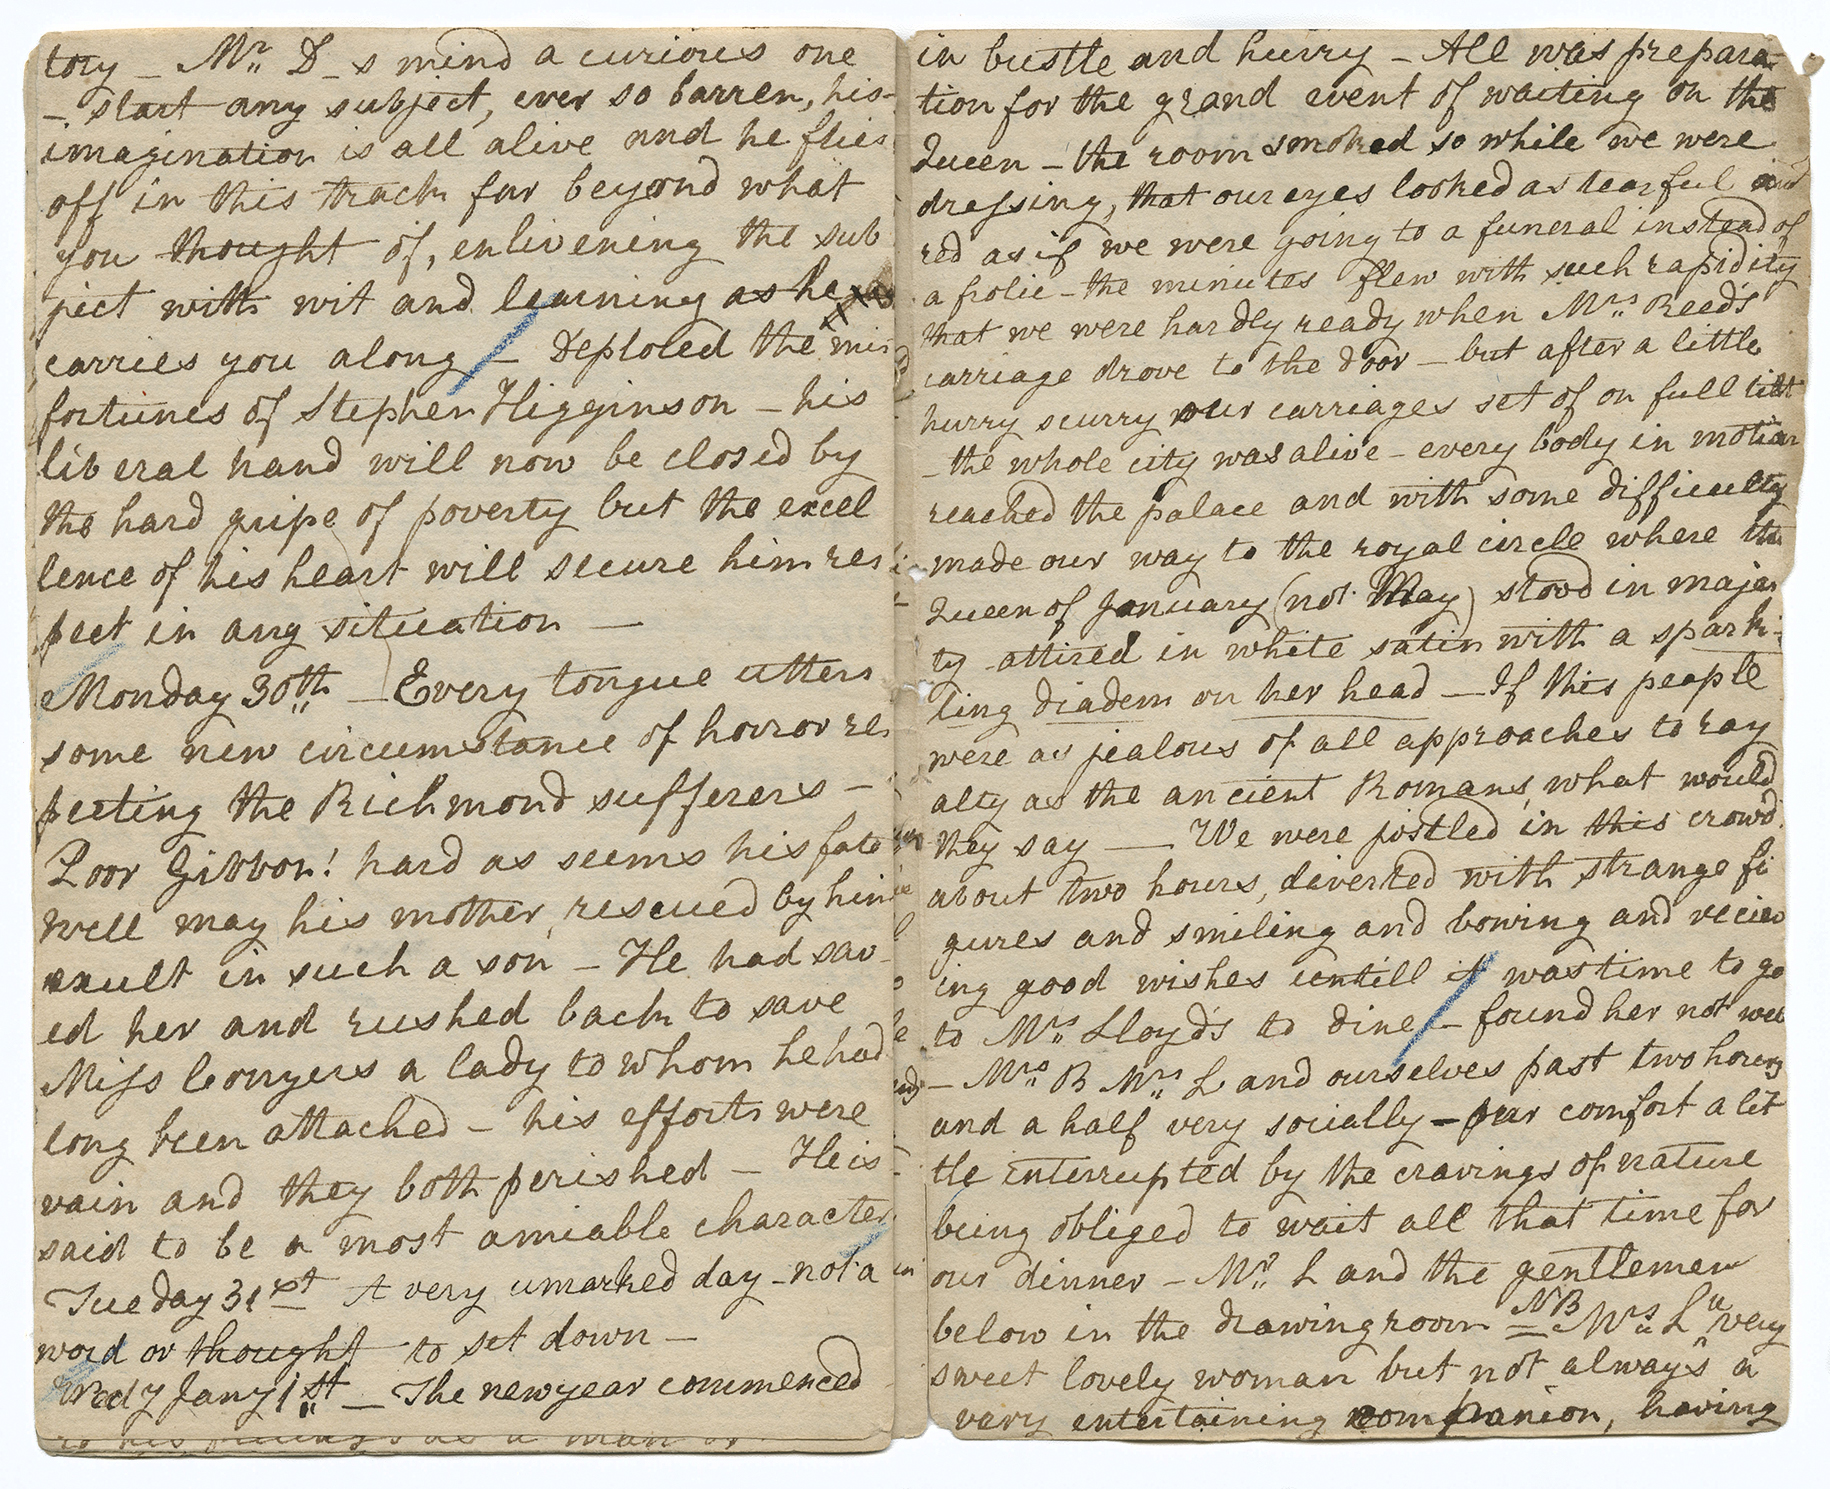 tory _ Mr. D_s mind a curious one
_ start any subject, ever so barren, his
imagination is all alive and he flies
off in this track far beyond what
you thought of, enlivening the sub
ject with wit and learning as he
carries you along _ Deplored the mis
fortunes of Stephen Higginson _ his
liberal hand will now be closed by
the hard gripe of poverty but the excel
lence of his heart will secure him res
pect in any situation —
Monday 30th _ Every tongue utters
some new circumstance of horror res
pecting the Richmond sufferers —
Poor Gibbon! hard as seems his fate
well may his mother, rescued by him
exult in such a son _ He had sav
ed her and rushed back to save
Miss Conyers a lady to whom he had
long been attached _ his efforts were
vain and they both perished _ He is
said to be a most amiable character
Tueday 31st A very umarked day _ not a
word or thought to set down —
Wedy Jany 1st _ The new year commenced
in bustle and hurry _ All was prepara
tion for the grand event of waiting on the
Queen _ the room smoked so while we were
dressing, that our eyes looked as tearful and
red as if we were going to a funeral instead of
a frolic _ the minutes flew with such rapidity
that we were hardly ready when Mrs. Reed's
carriage drove to the door _ but after a little
hurry scurry our carriages set of on full tilt
_ the whole city was alive _ every body in motion
reached the palace and with some difficulty
made our way to the royal circle where the
Queen of January (not May) stood in majes
ty attired in white satin with a spark
ling diadem on her head _ If this people
were as jealous of all approaches to roy
alty as the ancient Romans, what would
they say — We were jostled in this crowd
about two hours, diverted with strange fi
gures and smiling and bowing and reciev
ing good wishes untill it was time to go
to Mrs Lloyd's to dine _ found her not well
_ Mrs B Mrs. L and ourselves past two hours
and a half very socially _ our comfort a lit
tle interrupted by the cravings of nature
being obliged to wait all that time for
our dinner _ Mr. L and the gentlemen
below in the drawing room NB Mrs. L a very
sweet lovely woman but not always a
very entertaining companion, having